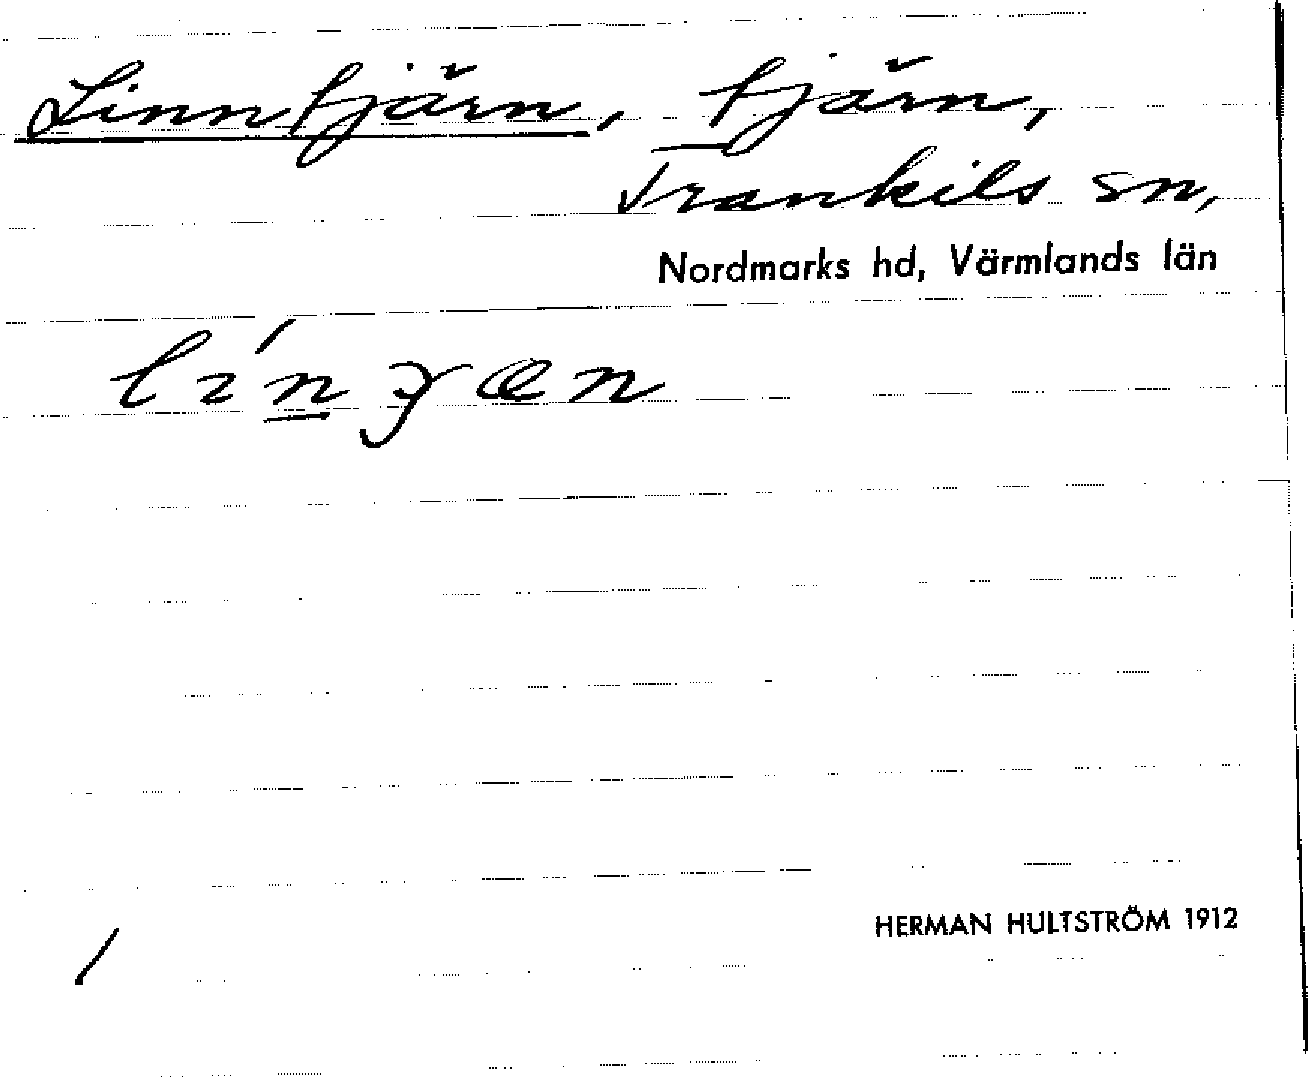 Linntjärn, tjärn,
Trankils sn,
Nordmarks hd, Värmlands län
HERMAN HULTSTRÖM 1912